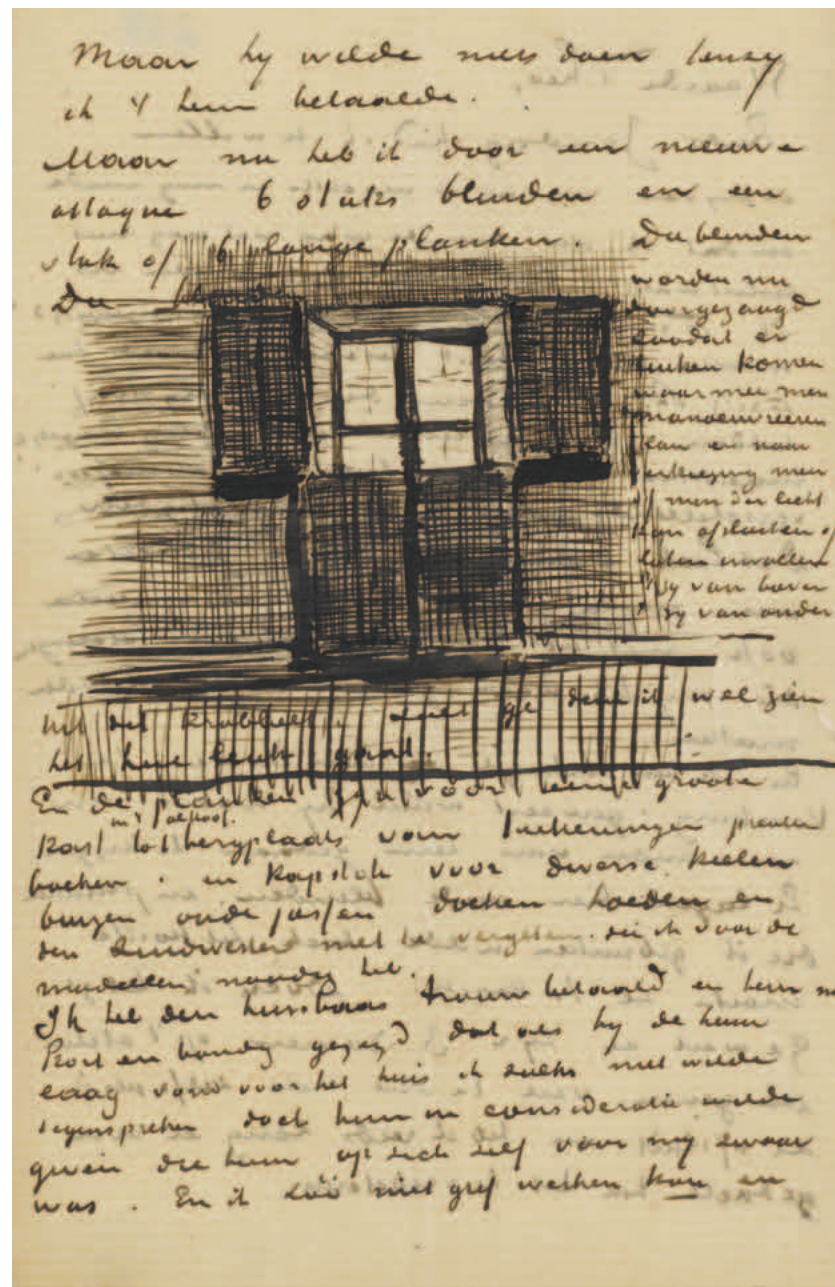 Maar hy wilde niets doen tenzy
ik 't hem betaalde.
Maar nu heb ik door een nieuwe
attaque 6 stuks blinden en een
stuk of 6 lange planken.
Die blinden
worden nu
doorgezaagd
zoodat er
luiken komen
waar mee men
manoeuvreeren
kan en naar
verkiezing men
men der licht
kan afsluiten of
laten invallen
't zy van boven
't zy van onder
Uit dit krabbeltje ziet ge denk ik wel zien
het heel leuk gaat.
En de planken zyn voor eene groote
kast in 't alkoof. tot bergplaats voor teekeningen prenten
boeken. en kapstok voor diverse kielen
buizen oude jassen doeken hoeden en
den zuidwester niet te vergeten die ik voor de
modellen noodig heb.
Ik heb den huisbaas trouw betaald en hem nu
kort en bondig gezegd dat als hy de huur
laag vond voor het huis ik zulks niet wilde
tegenspreken doch hem in consideratie wilde
geven die huur op zich zelf voor my zwaar
was. En ik zóó niet goed werken kon en